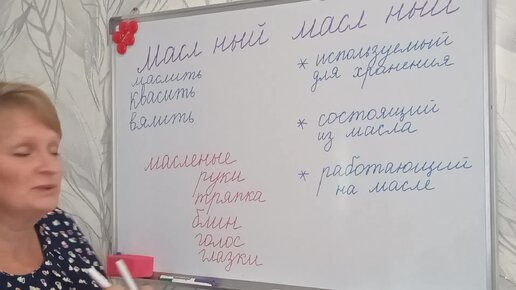 масл ный масл ный
маслить
квасить
вялить
масленые
руки
тряпка
блин
голос
глазки
* используемый
для хранения
* состоящий
из масла
* работающий
на масле